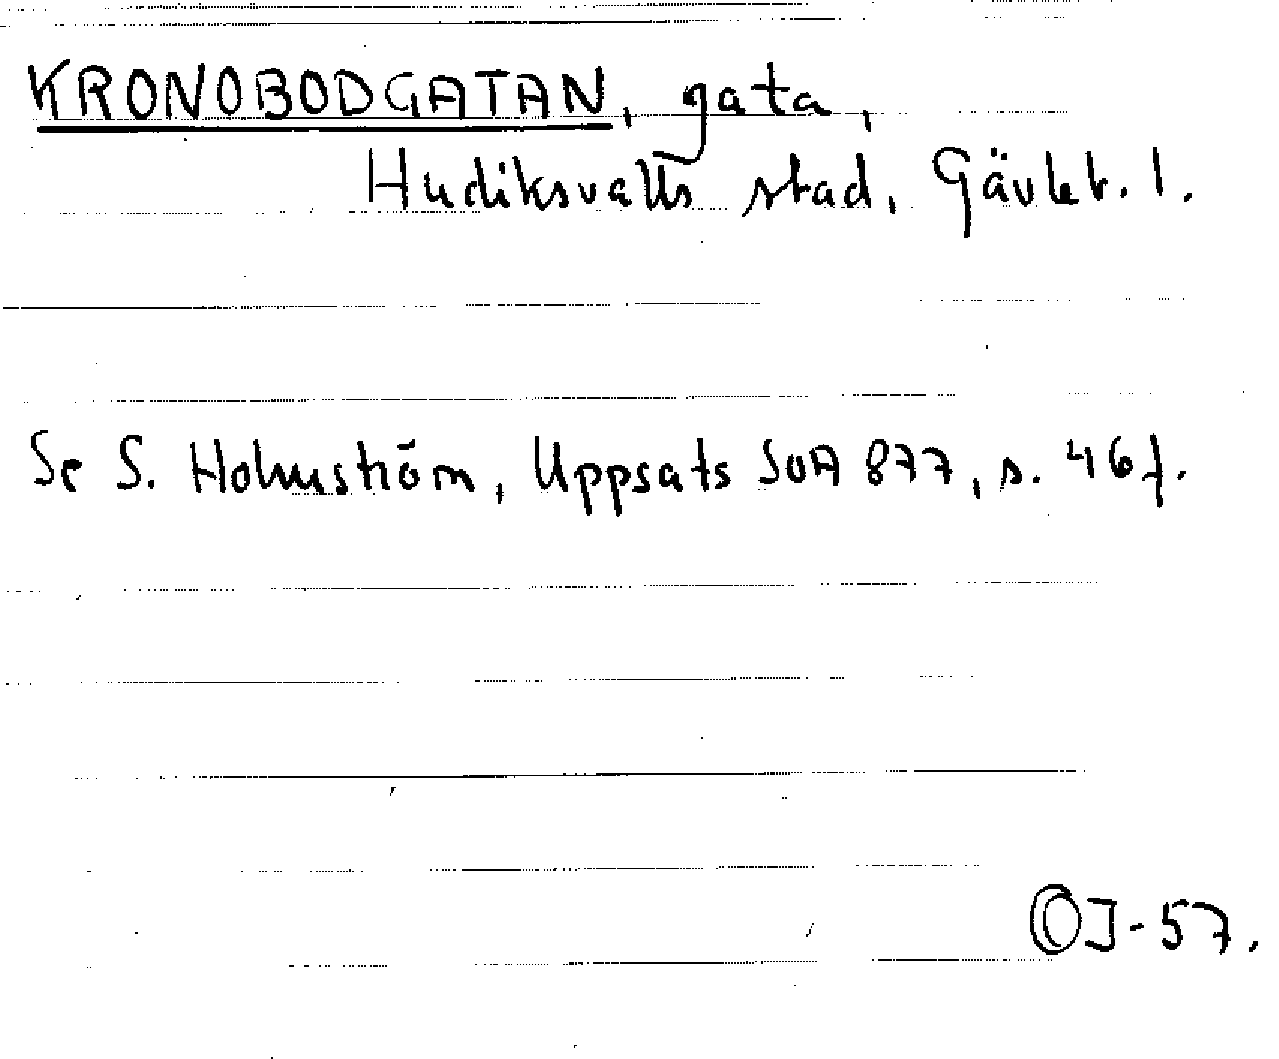 KRONOBODGATAN, gata,
Hudiksvalls stad, Gävleb. l.
Se S. Holmström, Uppsats SOA 877, s. 46 f.
OJ-57.